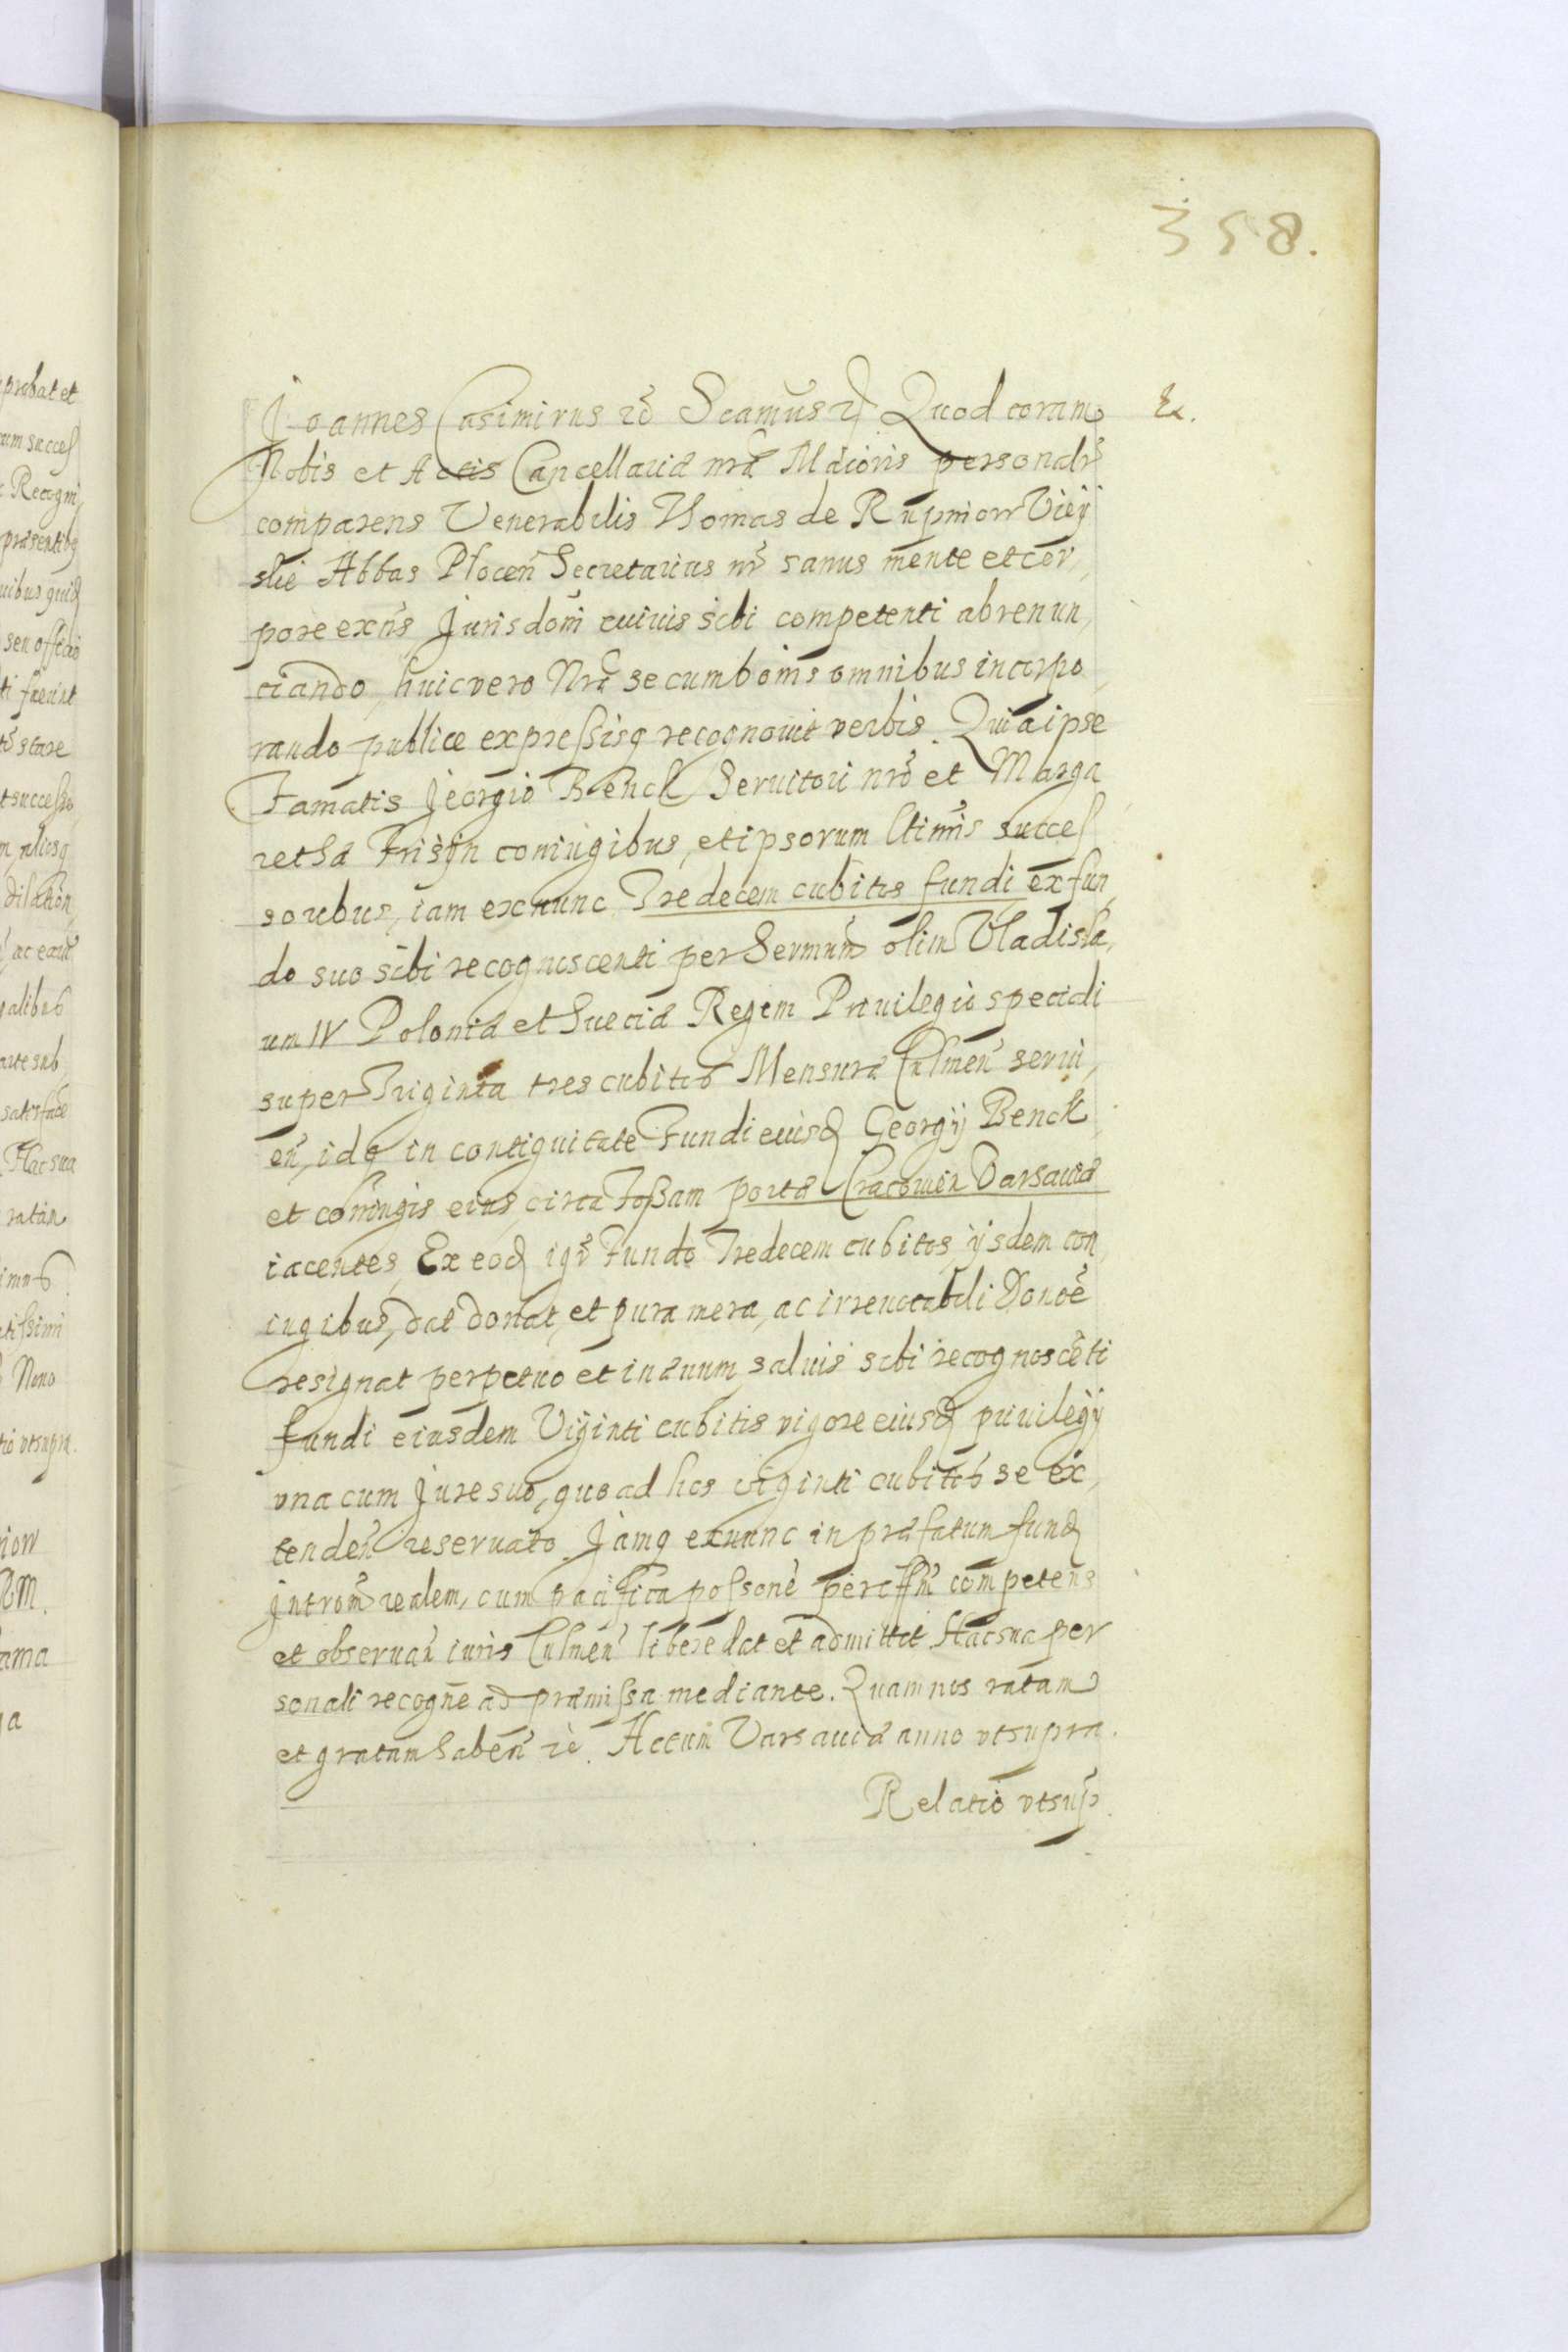 358.
Joannes Casimirus etc̃ Scamus etc. Quod coram
&.
Nobis et Actis Cancellariæ nr̃æ Maioris personalr̃
comparens Venerabilis Thomas de Rupniow Vieÿ
skie Abbas Plocen̄ Secretarius nr̃ sanus mente et cor,
pore exñs Jurisdõni cuiuis sibi competenti abrenun,
ciando, huic vero Nræ se cum bonis omnibus incorpo,
rando publice expressisq recognouit verbis. Quia ipse
Famatis Jeorgio Benck Seruitori nrõ et Marga
rethæ Frisÿn coniugibus, et ipsorum ltimis succes
soribus, iam ex nunc Tredecem cubitos fundi ex fun,
do suo sibi recognoscenti per Sermum olim Vladisla,
um IV Poloniæ et Sueciæ Regem Priuilegio speciali
super Triginta tres cubitos Mensuræ Culmeñ serui,
eñ, idq in contiguitate Fundi eiusd Georgÿ Benck,
et coniugis eius, circa Fossam portæ Cracouien Varsauiæ
iacentes, Ex eod igr̃ Fundo Tredecem cubitos, ijsdem con,
iugibus, dat donat, et pura mera, ac irreuocabili Donoẽ
resignat perpetuo et in æuum, saluis sibi recognoscẽti
fundi eiusdem Viginti cubitis vigore eiusd priuilegÿ
vna cum Jure suo, quo ad hos viginti cubitos se ex,
tendeñ reseruato. Jamq exnunc in præfatum fund
Introm̃ realem, cum pacifica possone per offm̃ competens
et obseruañ iuris Culmeñ libere dat et admittit Hac sua per
sonali recogñe ad præmissa mediante. Quam nos ratam
et gratam habeñ etc̃. Actum Varsauiæ anno vtsupra.
Relatio vtsup.